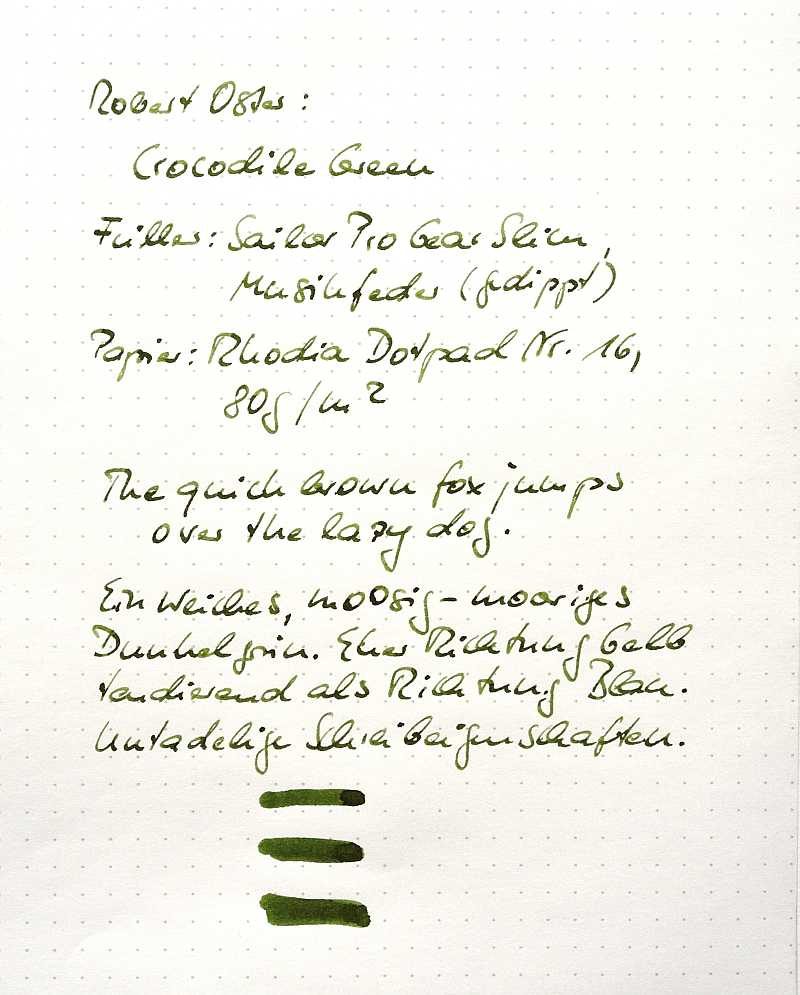 Robert Oster:
Crocodile Green
Füller: Sailor Pro Gear Slim,
Musikfeder (gedippt)
Papier: Rhodia Dotpad Nr. 16,
80g/m²
The quick brown fox jumps
over the lazy dog.
Ein weiches, moosig-mooriges
Dunkelgrün. Eher Richtung Gelb
tendierend als Richtung Blau.
Untadelige Schreibeigenschaften.